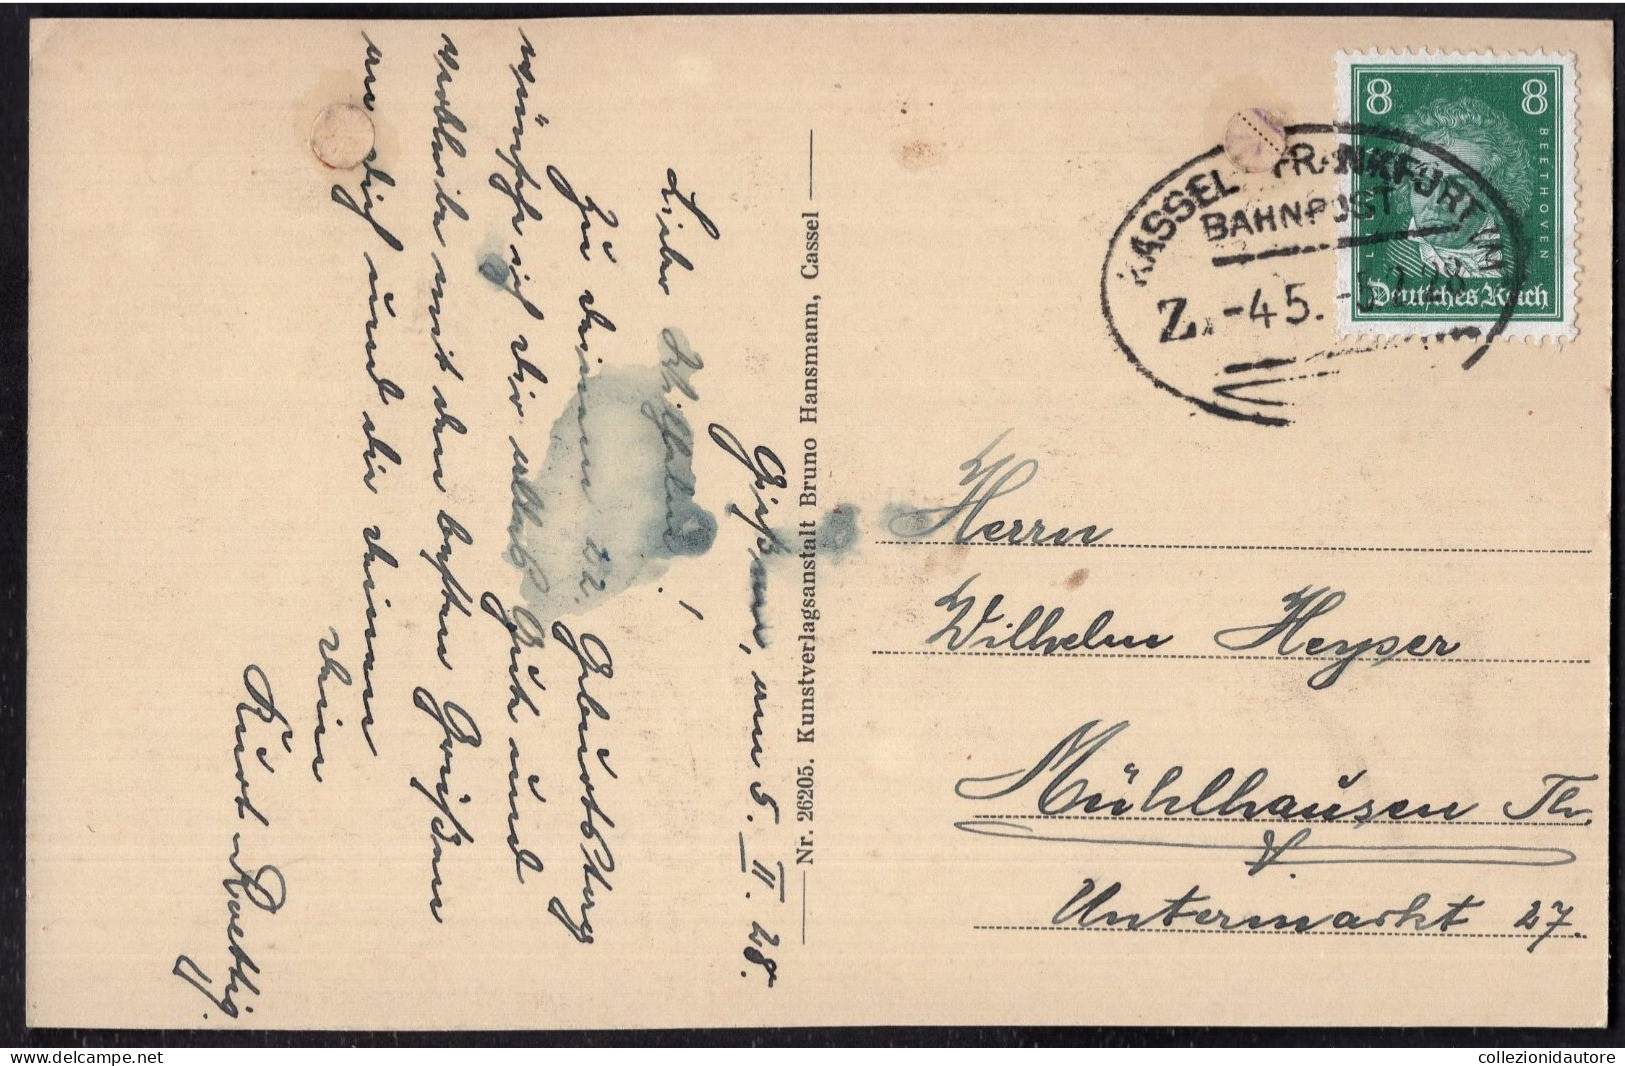 Gießen, am 5. II. 28.
Lieber Wilhelm!
Zu deinem 22. Geburtstag
wünsche ich dir alles Gute und
verbleibe mit den besten Grüßen
an dich und die deinen
dein
Kurt Roettig.
Nr. 26205. Kunstverlagsanstalt Bruno Hansmann, Cassel
8 8
BEETHOVEN
Deutsches Reich
KASSEL - FRANKFURT (M
BAHNPOST
Z. -45. -5.2.28
Herrn
Wilhelm Heyser
Mühlhausen Th.
Untermarkt 27.
collezionidautore